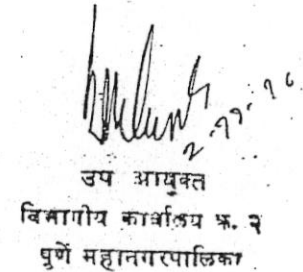 २-११-१८
उप आयुक्त
विभागीय कार्यालय क्र. २
पुणे महानगरपालिका